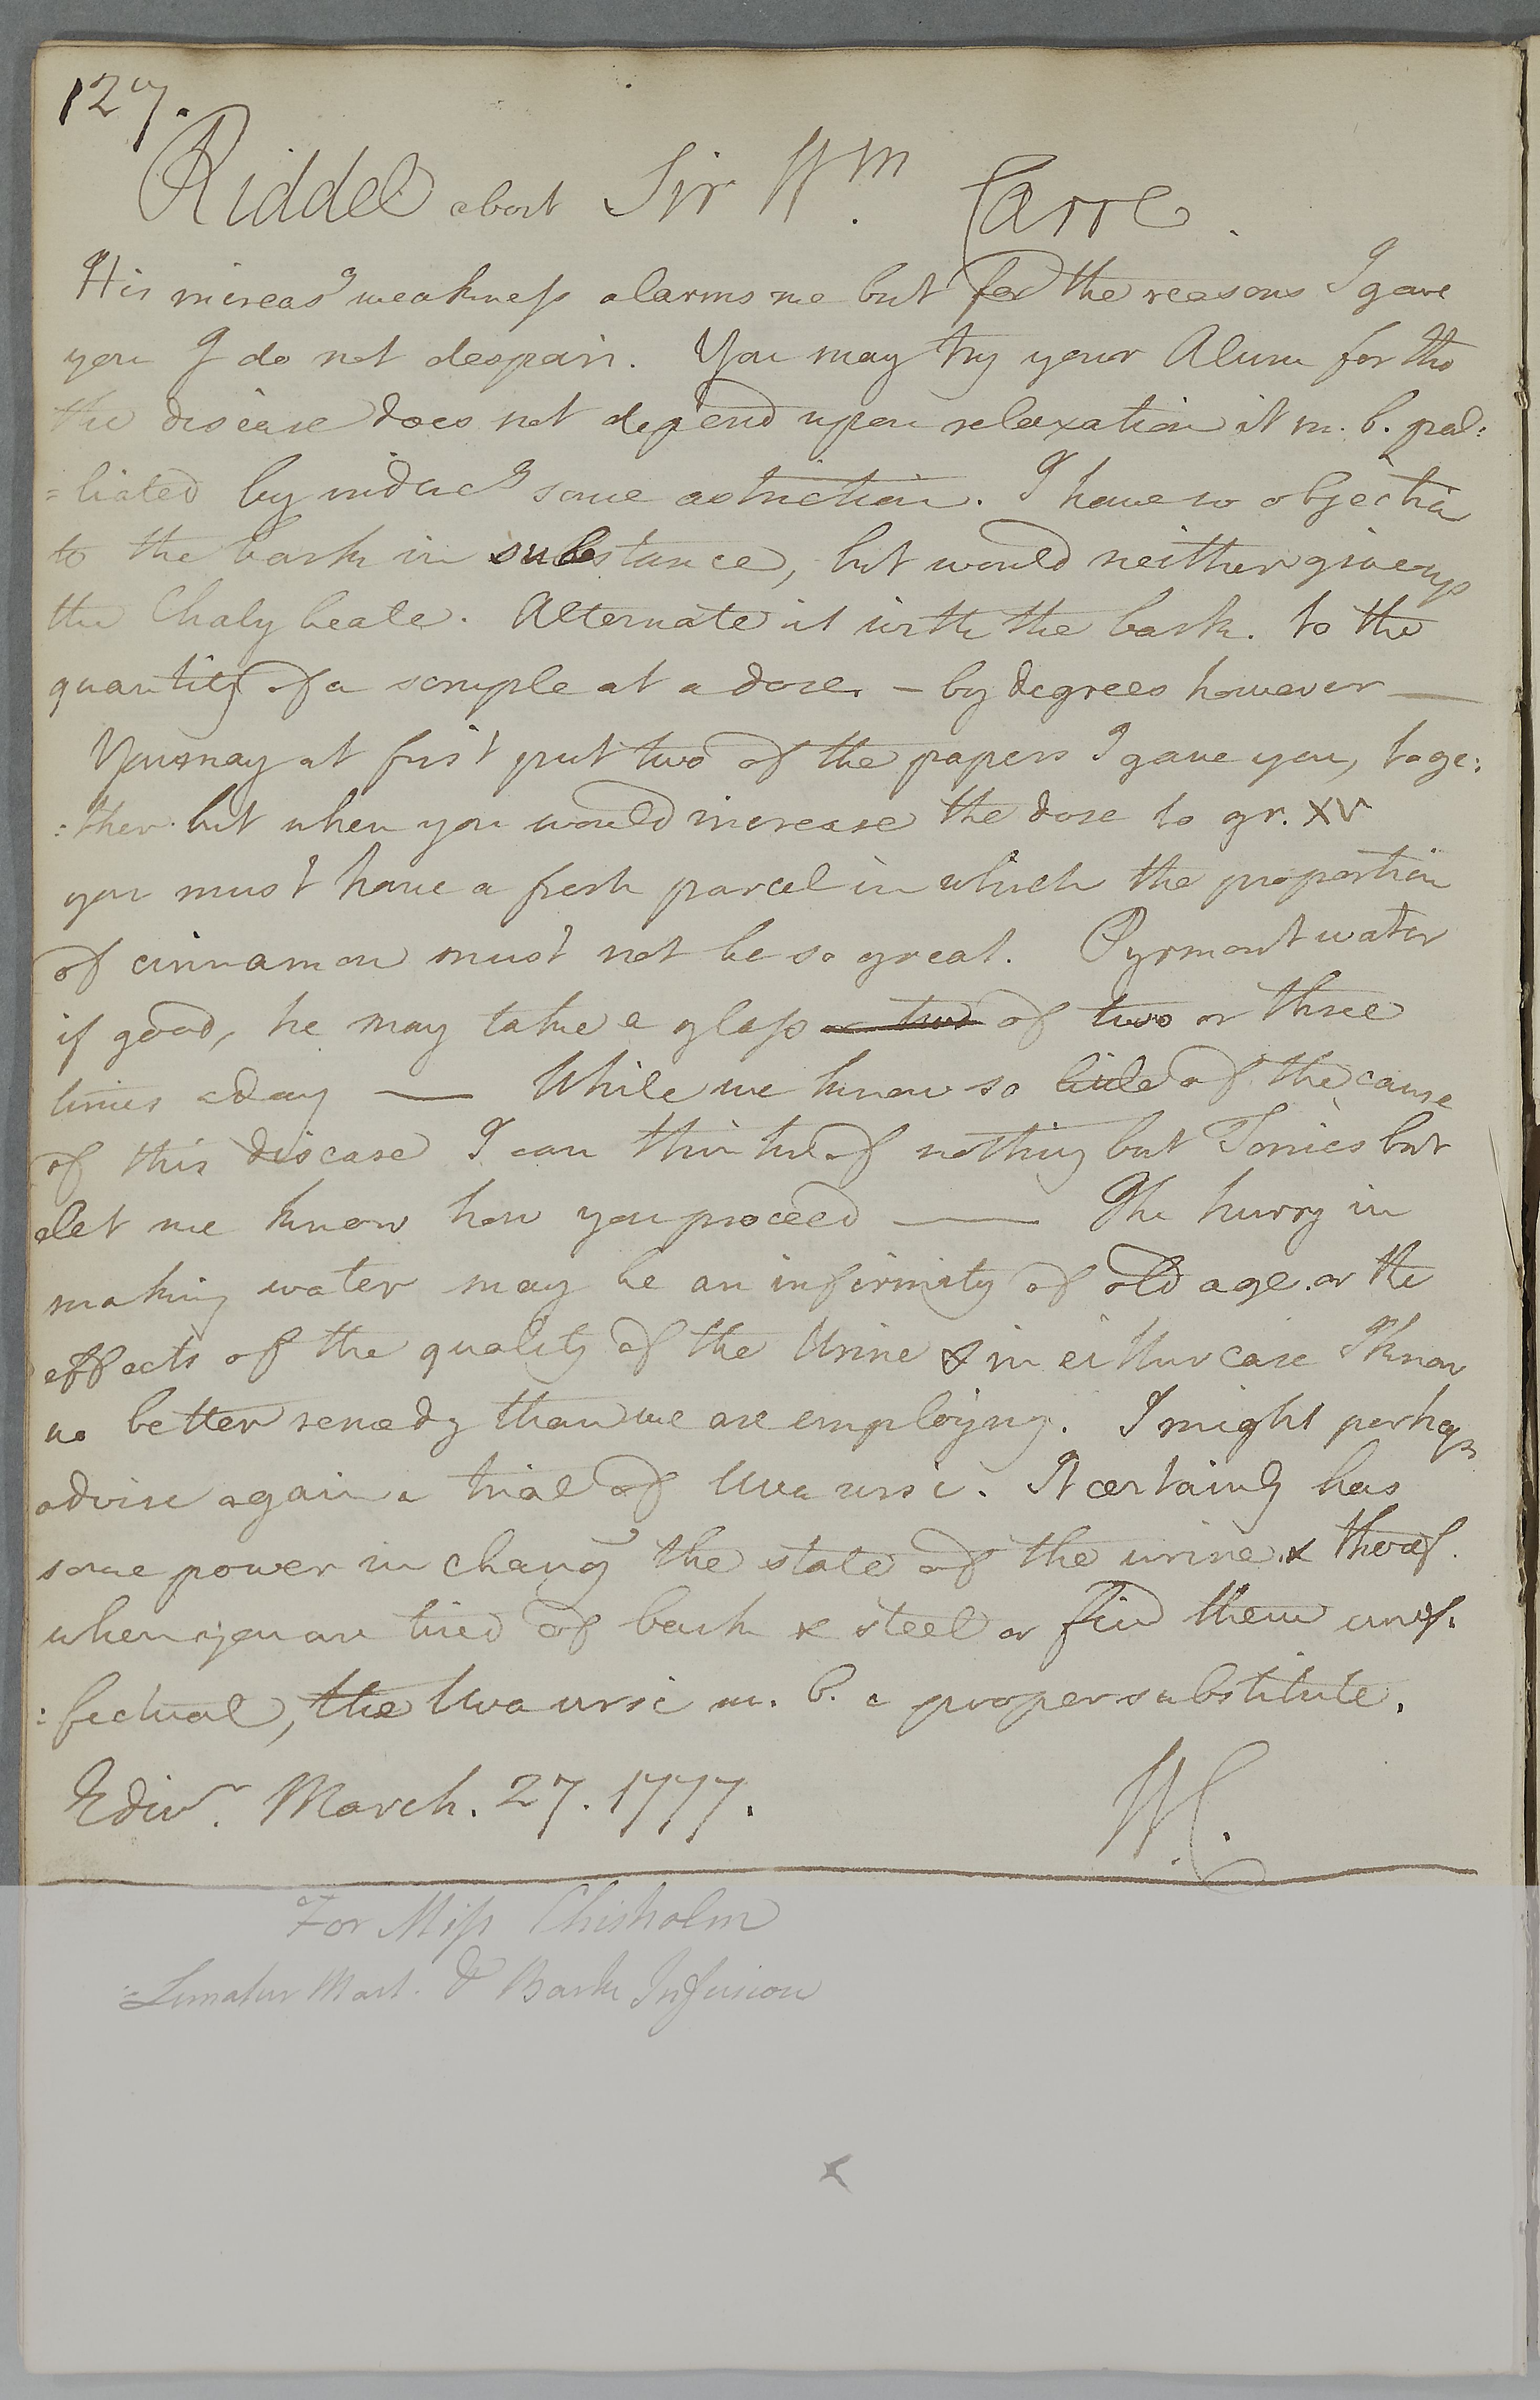 127.
Riddel about Sir Wm. Carre.
His increas'g weakness alarms me but for the reasons I gave
you I do not despair. You may try your Alum for tho
the disease does not depend upon relaxation it m. b. pal:
=liated by induc'g some astriction. I have no objection
to the bark in substance, but would neither give up
the Chalybeate. Alternate it with the bark. to the
quantity of a scruple at a dose. – by degrees however —
You may at first put two of the papers I gave you, toge:
:ther but when you would increase the dose to gr. XV
you must have a fresh parcel in which the proportion
of cinnamon must not be so great. Pyrmont water
if good, he may take a glass or two of two or three
times a day — While we know so little of the cause
of this disease I can think of nothing but Tonics but
let me know how you proceed — The hurry in
making water may be an infirmity of old age or the
effects of the quality of the Urine & in either case I know
no better remedy than we are employing. I might perhaps
advise again a trial of Uva ursi. It certainly has
some power in chang'g the state of the urine & theref.
when you are tired of bark & steel or find them inef:
:fectual, the Uva ursi m. b. a proper substitute.
Edinr. March. 27. 1777.
WC.
For Miss Chisholm
Limatur Mart. & Bark Infusion